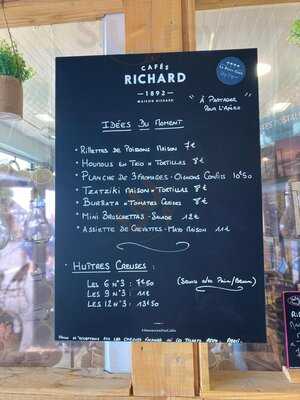 CAFÉS
RICHARD
1892
MAISON RICHARD
"À PARTAGER
POUR L'APÉRO
IDÉES DU MOMENT
• RILLETTES DE POISSONS MAISON 7€
• HOUMOUS EN TRIO & TORTILLAS 8€
• PLANCHE DE 3 FROMAGES - OIGNONS CONFITS 10€50
• TZATZIKI MAISON & TORTILLAS 8€
• BURRATA & TOMATES CERISES 8€
• MINI BROSCHETTAS - SALADE 12€
• ASSIETTE DE CREVETTES - MAYO MAISON 11€
• HUÎTRES CREUSES :
LES 6 N°3 : 7€50
(SERVIS AVEC PAIN/BEURRE)
LES 9 N°3 : 11€
LES 12 N°3 : 13€50